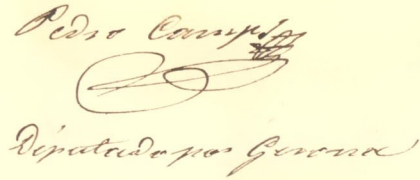 Pedro Camps
Diputado por Gerona